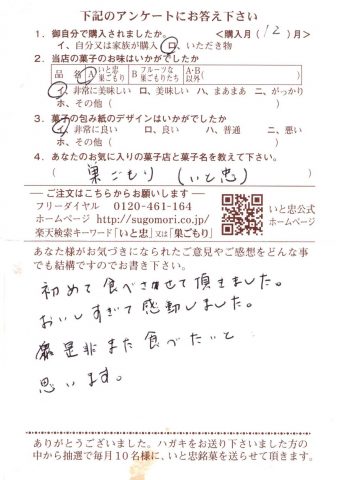 下記のアンケートにお答え下さい
1．御自分で購入されましたか。 ＜購入月(12)月＞
イ、自分又は家族が購入 ロ、いただき物
2．当店の菓子のお味はいかがでしたか
品名 A いと忠巣ごもり B フルーツな巣ごもりたち A・B以外( )
イ、非常に美味しい ロ、美味しい ハ、まあまあ ニ、がっかり
ホ、その他( )
3．菓子の包み紙のデザインはいかがでしたか
イ、非常に良い ロ、良い ハ、普通 ニ、悪い
ホ、その他( )
4．あなたのお気に入りの菓子店と菓子名を教えて下さい。
( 巣ごもり (いと忠) )
ご注文はこちらからお願いします
フリーダイヤル 0120-461-164
ホームページ http://sugomori.co.jp/
楽天検索キーワード「いと忠」又は「巣ごもり」
いと忠公式
ホームページ
あなた様がお気づきになられたご意見やご感想をどんな事
でも結構ですのでお書き下さい。
初めて食べさせて頂きました。
おいしすぎて感動しました。
是非また食べたいと
思います。
ありがとうございました。ハガキをお送り下さいました方の
中から抽選で毎月10名様に、いと忠銘菓を送らせて頂きます。